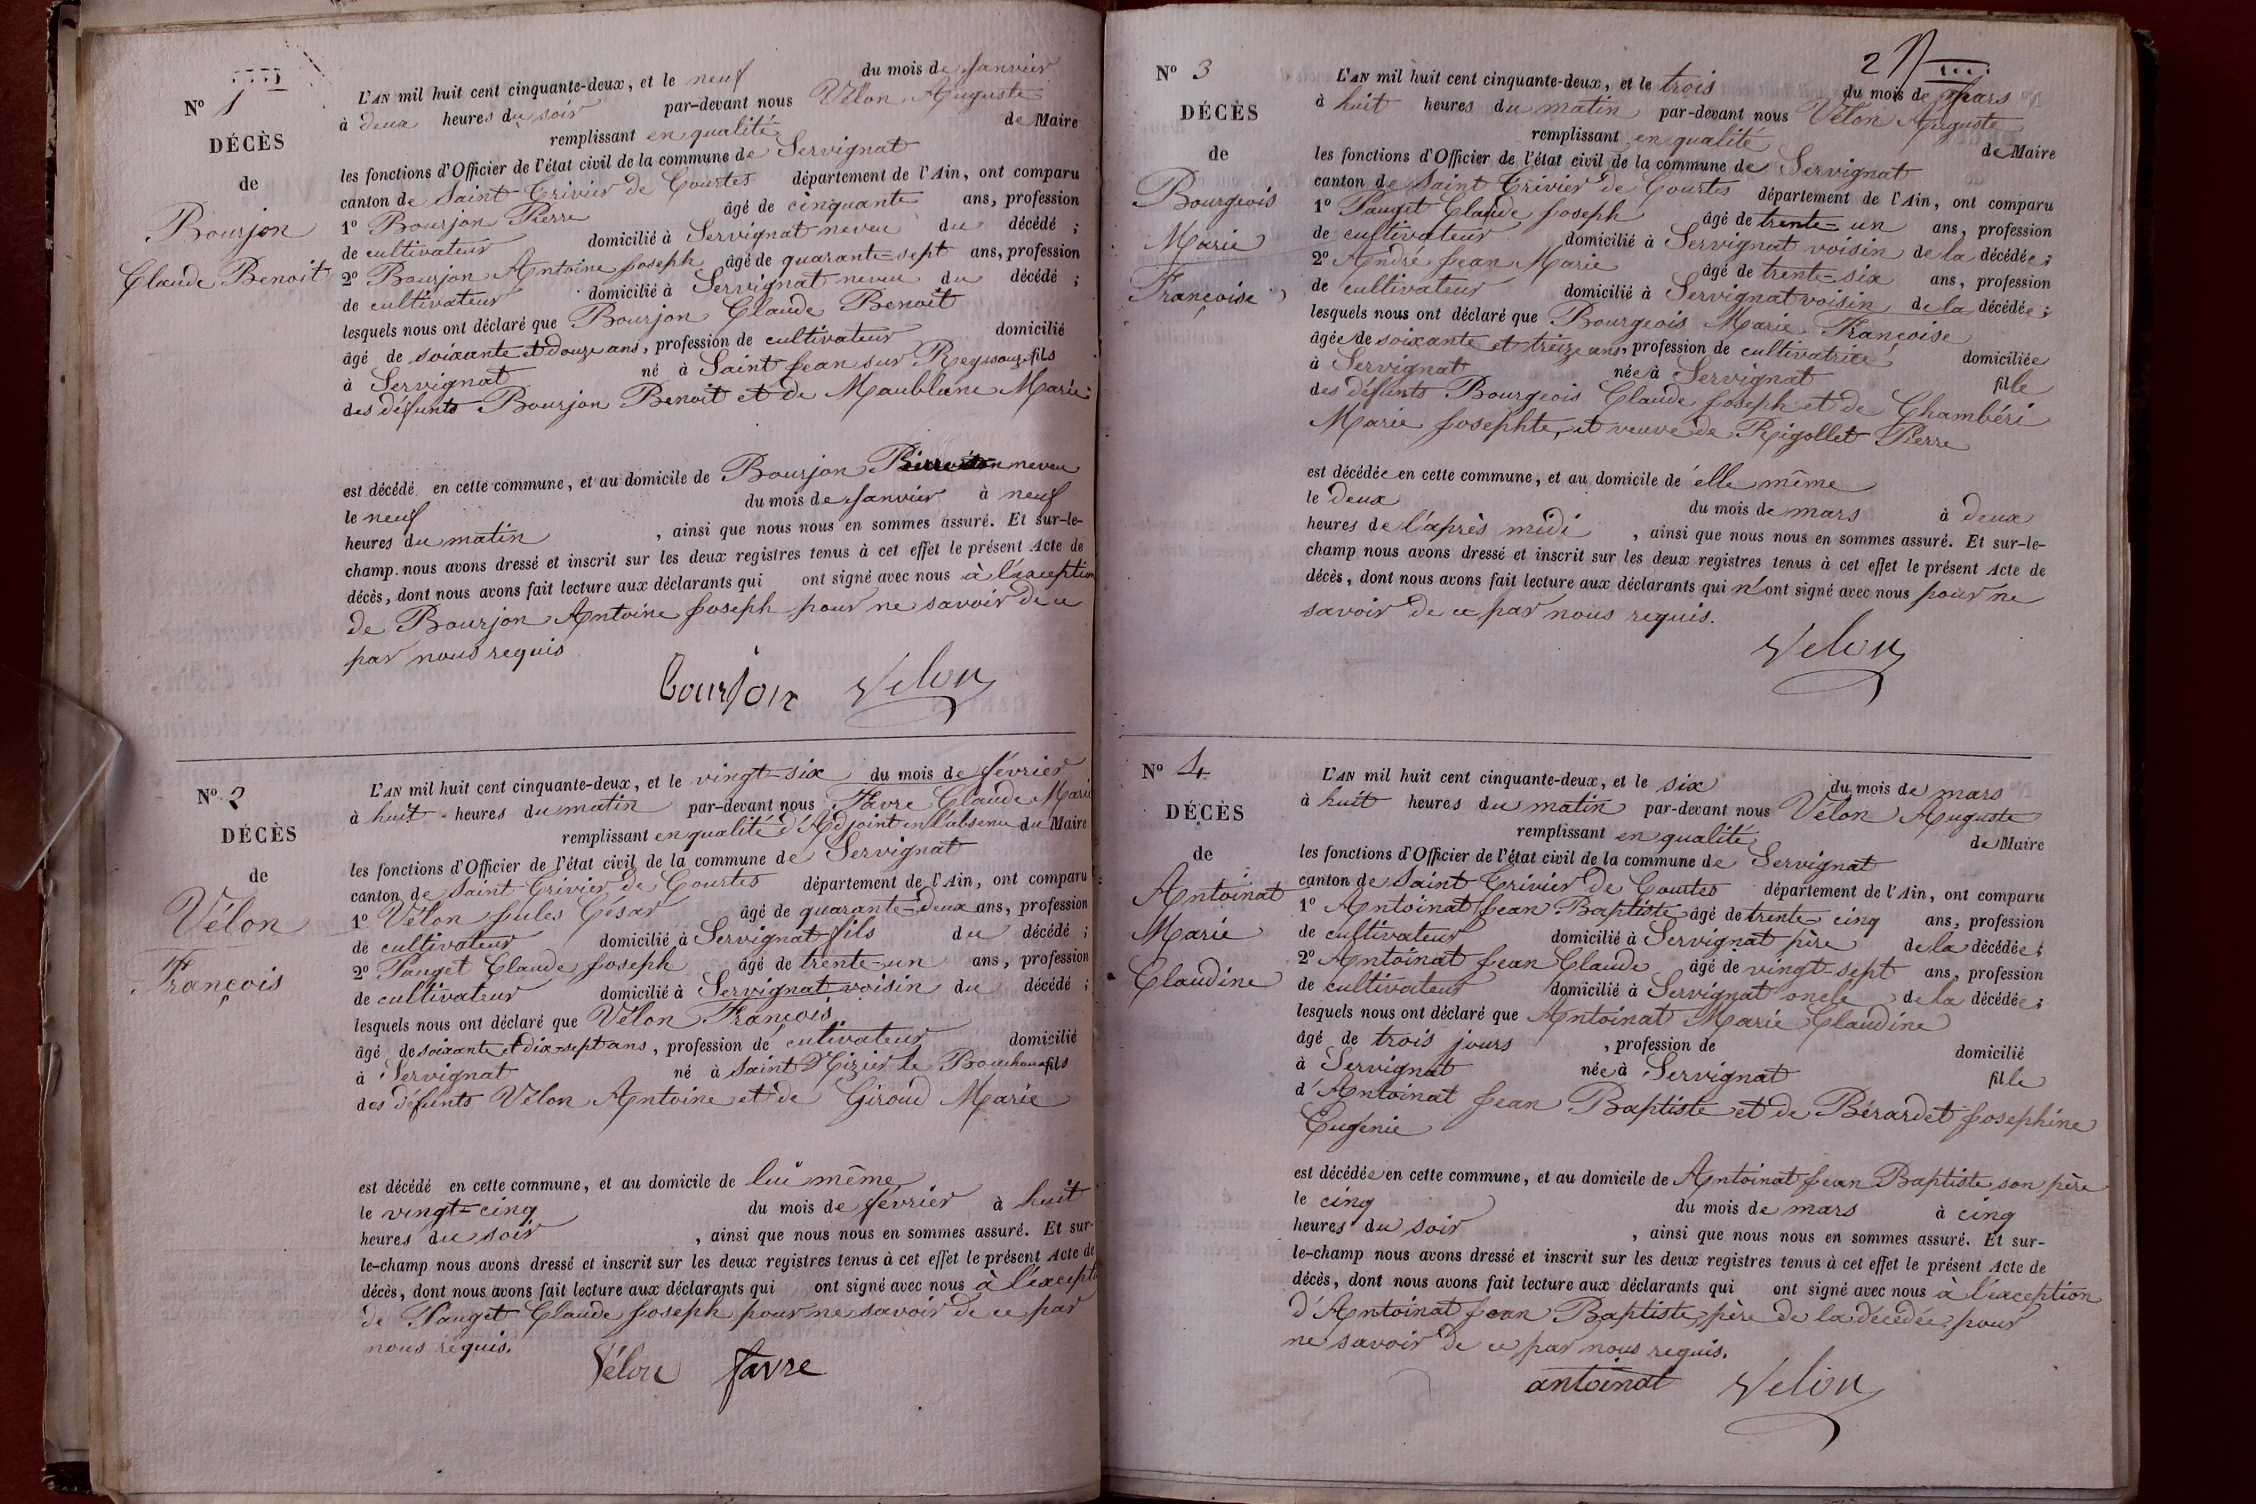 N° 1
DÉCÈS
de
Bourjon
Claude Benoit
L'AN mil huit cent cinquante-deux, et le neuf du mois de Janvier
à deux heures du soir par-devant nous Vélon Auguste
remplissant en qualité de Maire
les fonctions d'Officier de l'état civil de la commune de Servignat
canton de Saint Trivier de Courtes département de l'Ain, ont comparu
1° Bourjon Pierre âgé de cinquante ans, profession
de cultivateur domicilié à Servignat neveu du décédé ;
2° Bourjon Antoine Joseph âgé de quarante-sept ans, profession
de cultivateur domicilié à Servignat neveu du décédé ;
lesquels nous ont déclaré que Bourjon Claude Benoit
âgé de soixante et douze ans, profession de cultivateur domicilié
à Servignat né à Saint Jean sur Reyssouze fils
des défunts Bourjon Benoit et de Maublanc Marie
est décédé en cette commune, et au domicile de Bourjon Pierre son neveu
le neuf du mois de Janvier à neuf
heures du matin , ainsi que nous nous en sommes assuré. Et sur-le-
champ nous avons dressé et inscrit sur les deux registres tenus à cet effet le présent Acte de
décès, dont nous avons fait lecture aux déclarants qui ont signé avec nous à l'exception
de Bourjon Antoine Joseph pour ne savoir de ce
par nous requis
Bourjon Velon
N° 2
DÉCÈS
de
Vélon
François
L'AN mil huit cent cinquante-deux, et le vingt-six du mois de février
à huit heures du matin par-devant nous Favre Claude Marie
remplissant en qualité d'Adjoint en l'absence du Maire
les fonctions d'Officier de l'état civil de la commune de Servignat
canton de Saint Trivier de Courtes département de l'Ain, ont comparu
1° Vélon Jules César âgé de quarante-deux ans, profession
de cultivateur domicilié à Servignat fils du décédé ;
2° Pauget Claude Joseph âgé de trente-un ans, profession
de cultivateur domicilié à Servignat voisin du décédé ;
lesquels nous ont déclaré que Vélon François
âgé de soixante et dix-sept ans, profession de cutivateur domicilié
à Servignat né à Saint Nizier le Bouchoux fils
des défunts Vélon Antoine et de Giroud Marie
est décédé en cette commune, et au domicile de lui même
le vingt-cinq du mois de février à huit
heures du soir , ainsi que nous nous en sommes assuré. Et sur-
le-champ nous avons dressé et inscrit sur les deux registres tenus à cet effet le présent Acte de
décès, dont nous avons fait lecture aux déclarants qui ont signé avec nous à l'excepti
de Pauget Claude Joseph pour ne savoir de ce par
nous requis.
Vélon favre
2
N° 3
DÉCÈS
de
Bourgeois
Marie
Françoise
L'AN mil huit cent cinquante-deux, et le trois du mois de Mars
à huit heures du matin par-devant nous Vélon Auguste
remplissant en qualité de Maire
les fonctions d'Officier de l'état civil de la commune de Servignat
canton de Saint Trivier de Courtes département de l'Ain, ont comparu
1° Pauget Claude Joseph âgé de trente-un ans, profession
de cultivateur domicilié à Servignat voisin de la décédée ;
2° André Jean Marie âgé de trente-six ans, profession
de cultivateur domicilié à Servignat voisin de la décédée ;
lesquels nous ont déclaré que Bourgeois Marie Françoise
âgée de soixante et treize ans, profession de cultivatrice domiciliée
à Servignat née à Servignat fille
des défunts Bourgeois Claude Joseph et de Chambéri
Marie Josephte, et veuve de Rigollet Pierre
est décédée en cette commune, et au domicile de elle même
le deux du mois de mars à deux
heures de l'après midi , ainsi que nous nous en sommes assuré. Et sur-le-
champ nous avons dressé et inscrit sur les deux registres tenus à cet effet le présent Acte de
décès, dont nous avons fait lecture aux déclarants qui n'ont signé avec nous pour ne
savoir de ce par nous requis.
Velon
N° 4
DÉCÈS
de
Antoinat
Marie
Claudine
L'AN mil huit cent cinquante-deux, et le six du mois de mars
à huit heures du matin par-devant nous Vélon Auguste
remplissant en qualité de Maire
les fonctions d'Officier de l'état civil de la commune de Servignat
canton de Saint Trivier de Courtes département de l'Ain, ont comparu
1° Antoinat Jean Baptiste âgé de trente-cinq ans, profession
de cultivateur domicilié à Servignat père de la décédée ;
2° Antoinat Jean Claude âgé de vingt-sept ans, profession
de cultivateur domicilié à Servignat oncle de la décédée ;
lesquels nous ont déclaré que Antoinat Marie Claudine
âgé de trois jours , profession de domicilié
à Servignat née à Servignat fille
d'Antoinat Jean Baptiste et de Bérardet Josephine
Eugénie
est décédée en cette commune, et au domicile de Antoinat Jean Baptiste son père
le cinq du mois de mars à cinq
heures du soir , ainsi que nous nous en sommes assuré. Et sur-
le-champ nous avons dressé et inscrit sur les deux registres tenus à cet effet le présent Acte de
décès, dont nous avons fait lecture aux déclarants qui ont signé avec nous à l'exception
d'Antoinat Jean Baptiste père de la décédée pour
ne savoir de ce par nous requis.
antoinat Velon